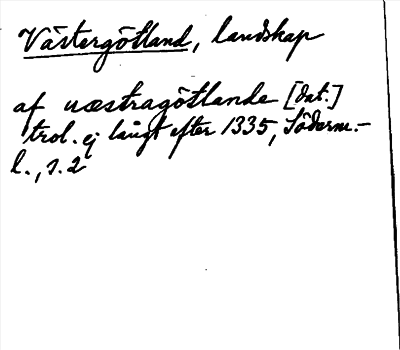 Västergötland, landskap
af uæstragötlande [dat.]
trol. ej långt efter 1335, Söderm.-
l., s. 2